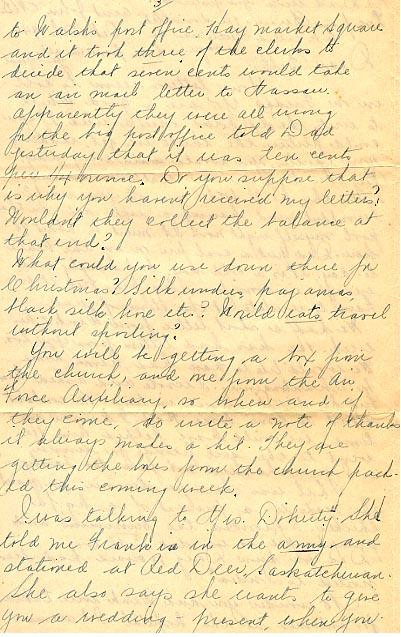 3/
to Walsh's post office, Hay market Square
and it took three of the clerks to
decide that seven cents would take
an air mail letter to Nassau.
Apparently they were all wrong
for the big post office told Dad
yesterday that it was ten cents
per 1/4 ounce. Do you suppose that
is why you haven't received my letters?
Wouldn't they collect the balance at
that end?
What could you use down there for
Christmas? Silk undies, pajamas,
black silk hose etc? Would eats travel
without spoiling?
You will be getting a box from
the church, and one from the Air
Force Auxiliary, so when and if
they come, do write a note of thanks
it always makes a hit. They are
getting the boxes from the church pack-
ed this coming week.
I was talking to Mrs. Doherty. She
told me Frank is in the army and
stationed at Red Deer, Saskatchewan.
She also says she wants to give
you a wedding - present when you